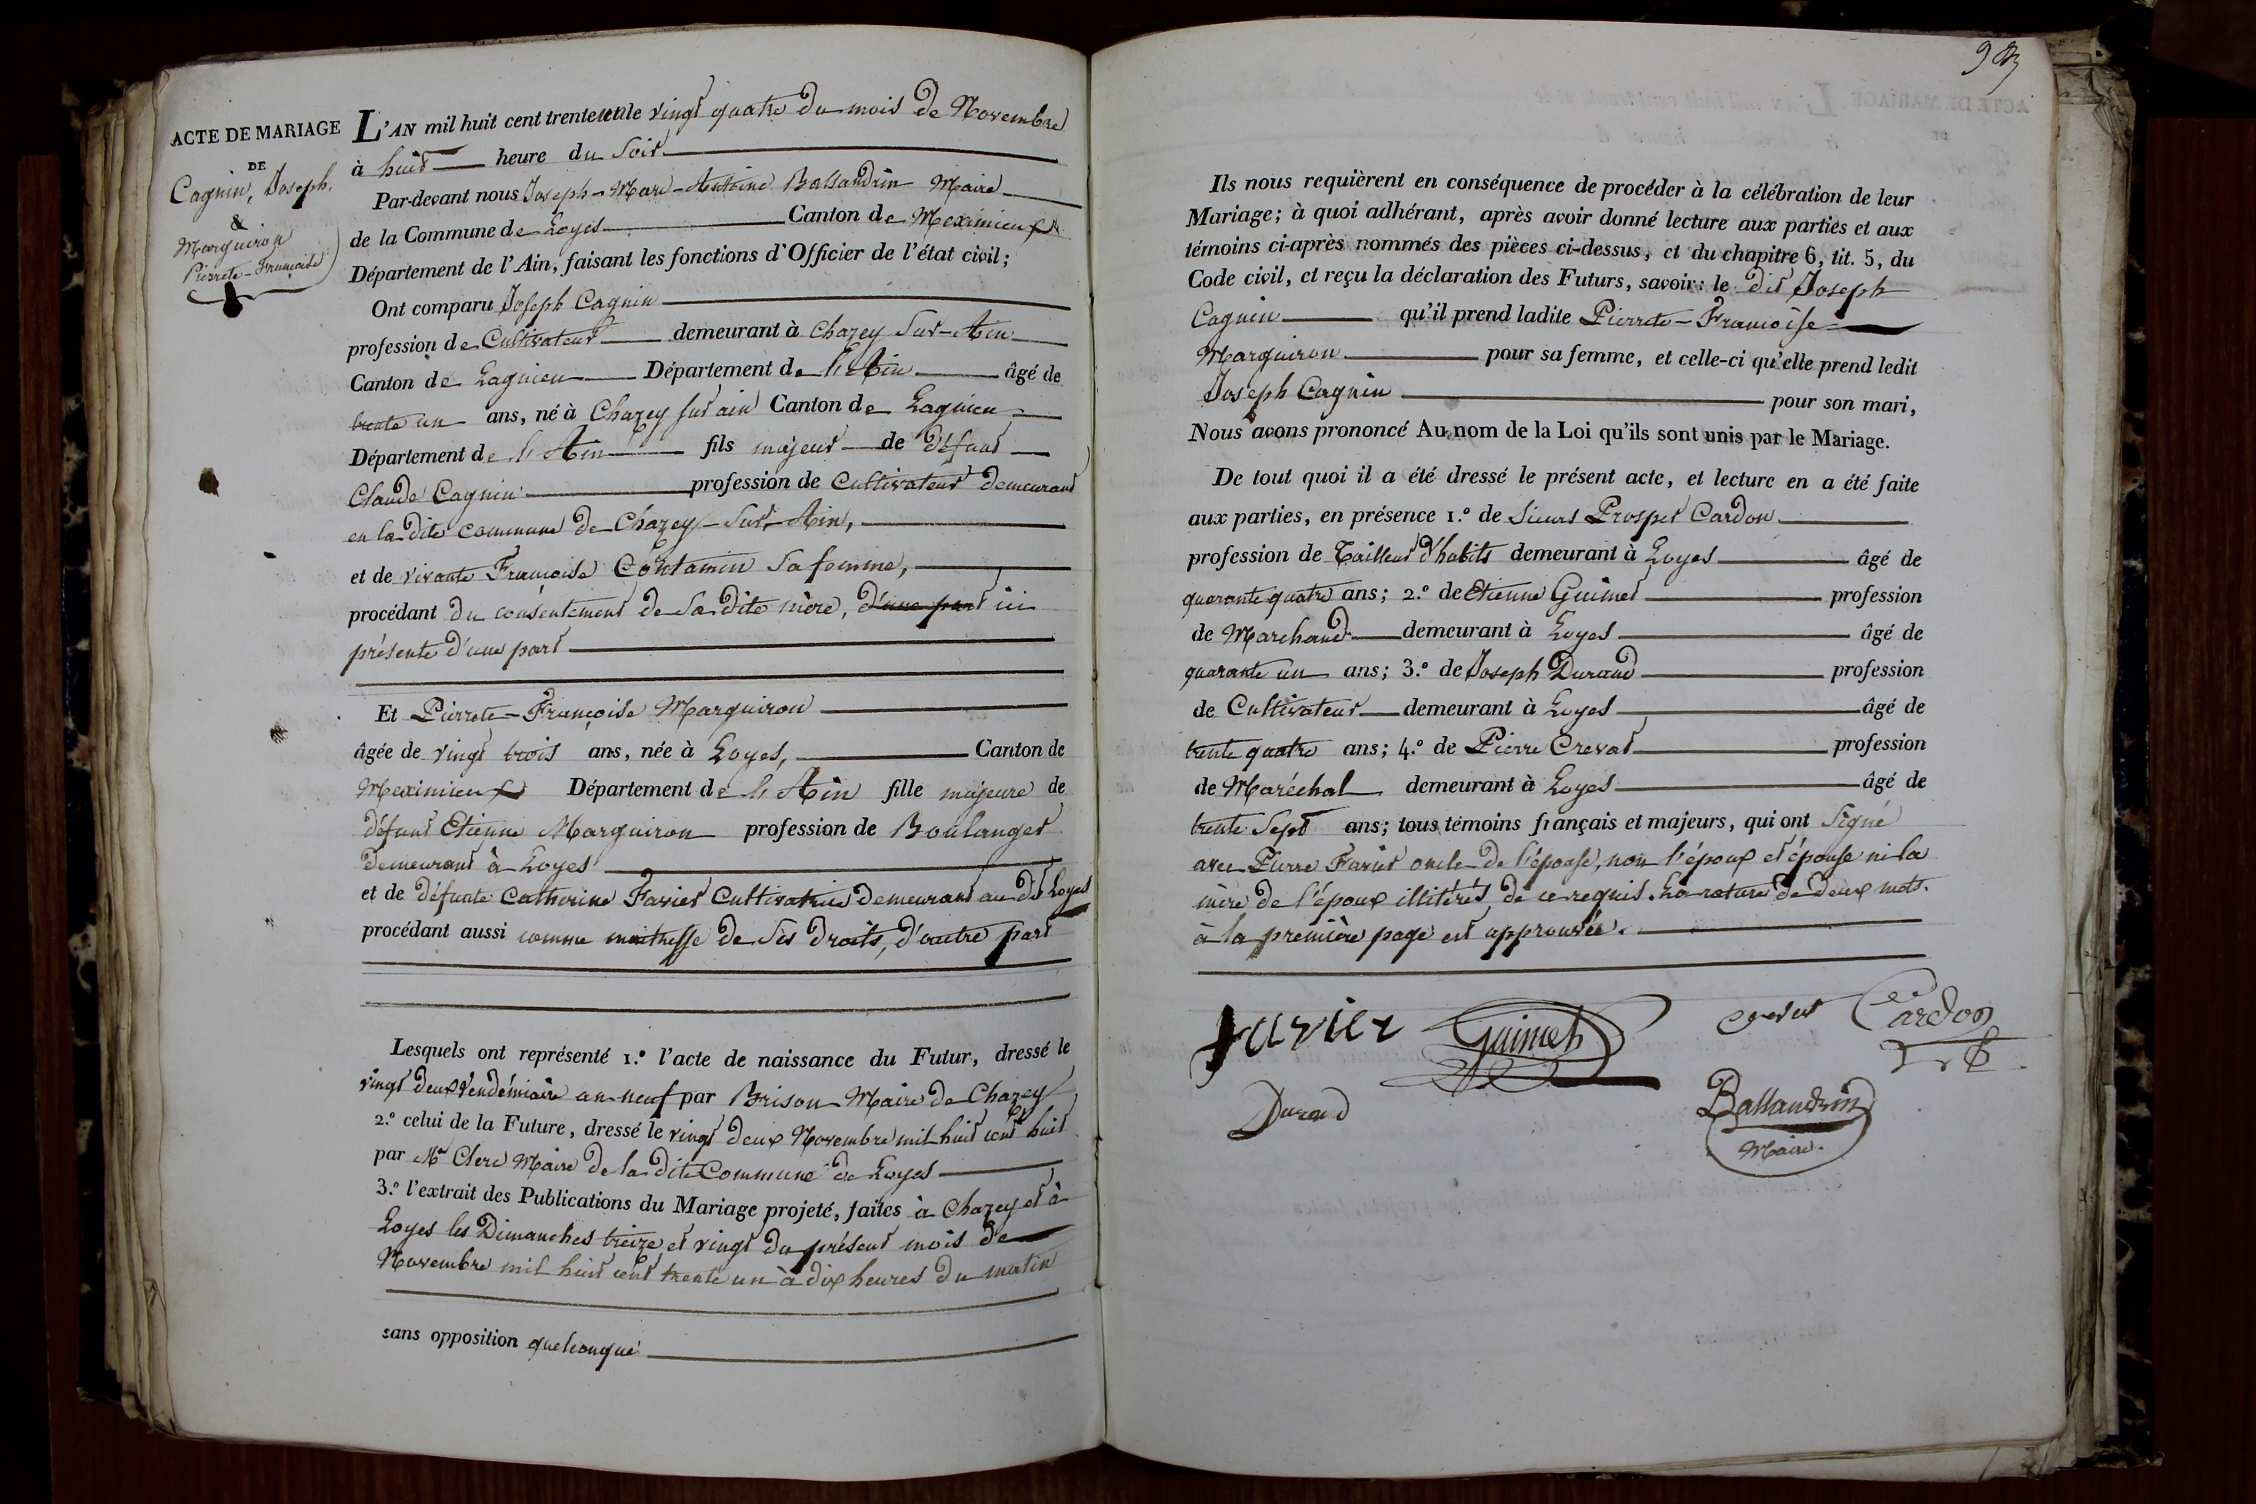 ACTE DE MARIAGE
DE
Cagnin, Joseph.
&
Marguiron
Pierrete-Françoise
L'AN mil huit cent trente un le vingt quatre du mois de Novembre
à huit heure du Soir
Par-devant nous Joseph-Marie-Antoine Ballandrin Maire
de la Commune de Loyes Canton de Meximieux
Département de l'Ain, faisant les fonctions d'Officier de l'état civil;
Ont comparu Joseph Cagnin
profession de Cultivateur demeurant à Chazey Sur-Ain
Canton de Lagnieu Département de l'Ain âgé de
trente un ans, né à Chazey sur ain Canton de Lagnieu
Département de l'Ain fils majeur de défunt
Claude Cagnin profession de Cultivateur demeurant
en la dite commune de Chazey-Sur-Ain,
et de vivante Françoise Contamin Sa femme,
procédant du consentement de Sa dite mère, d'une part ici
présente d'une part
Et Pierrete-Françoise Marguiron
âgée de vingt trois ans, née à Loyes, Canton de
Meximieux Département de l'Ain fille majeure de
défunt Etienne Marguiron profession de Boulanger
demeurant à Loyes
et de défunte Catherine Favier Cultivatrice demeurant au dt Loyes
procédant aussi comme maitresse de Ses Droits, d'autre part
Lesquels ont représenté 1.º l'acte de naissance du Futur, dressé le
vingt deux Vendémiaire an neuf par Brison Maire de Chazey
2.º celui de la Future, dressé le vingt deux Novembre mil huit cent huit
par Mr Clerc Maire de la dite Commune de Loyes
3.º l'extrait des Publications du Mariage projeté, faites à Chazey et à
Loyes les Dimanches treize et vingt du présent mois de
Novembre mil huit cent trente un à dix heures du matin
sans opposition quelconque
Ils nous requièrent en conséquence de procéder à la célébration de leur
Mariage; à quoi adhérant, après avoir donné lecture aux parties et aux
témoins ci-après nommés des pièces ci-dessus, et du chapitre 6, tit. 5, du
Code civil, et reçu la déclaration des Futurs, savoir: le dit Joseph
Cagnin qu'il prend ladite Pierrete-Françoise
Marguiron pour sa femme, et celle-ci qu'elle prend ledit
Joseph Cagnin pour son mari,
Nous avons prononcé Au nom de la Loi qu'ils sont unis par le Mariage.
De tout quoi il a été dressé le présent acte, et lecture en a été faite
aux parties, en présence 1.º de Sieurs Prosper Cardon
profession de Tailleur d'habits demeurant à Loyes âgé de
quarante quatre ans; 2.º de Etienne Guimet profession
de Marchand demeurant à Loyes âgé de
quarante un ans; 3.º de Joseph Durand profession
de Cultivateur demeurant à Loyes âgé de
trente quatre ans; 4.º de Pierre Crevat profession
de Maréchal demeurant à Loyes âgé de
trente Sept ans; tous témoins français et majeurs, qui ont Signé
avec Pierre Favier oncle de l'épouse, non l'époux et épouse ni la
mère de l'époux illitérés de ce requis. La rature de deux mots
à la première page est approuvée.
favier Guimet crevat Cardon
Durand
Ballandrin
Maire.